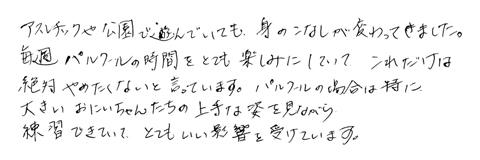 アスレチックや公園で遊んでいても、身のこなしが変わってきました。
毎週 パルクールの時間をとても楽しみにしていて これだけは
絶対やめたくないと言っています。パルクールの場合は特に
大きいおにいちゃんたちの上手な姿を見ながら
練習できていて とてもいい影響を受けています。